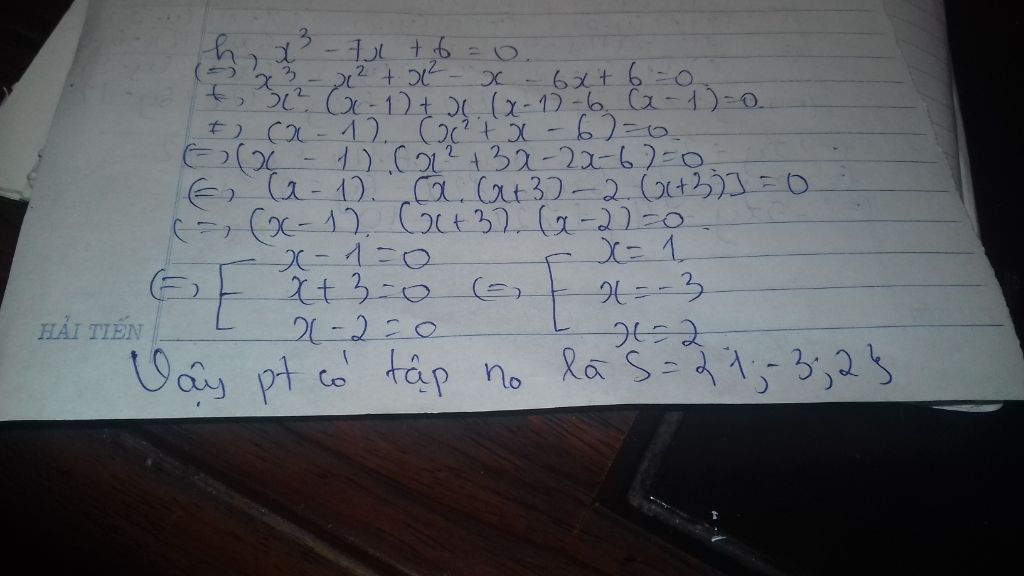 h, x³ - 7x + 6 = 0
(=) x³ - x² + x² - x - 6x + 6 = 0
(=) x². (x-1) + x. (x-1) - 6. (x-1) = 0.
(=) (x - 1). (x² + x - 6) = 0
(=) (x - 1). (x² + 3x - 2x - 6) = 0
(=) (x - 1). [x. (x+3) - 2. (x+3)] = 0
(=) (x - 1). (x+3). (x-2) = 0
x - 1 = 0 x = 1
(=) [ x + 3 = 0 (=) [ x = -3
x - 2 = 0 x = 2
HẢI TIẾN
Vậy pt có tập no là S = {1; -3; 2}